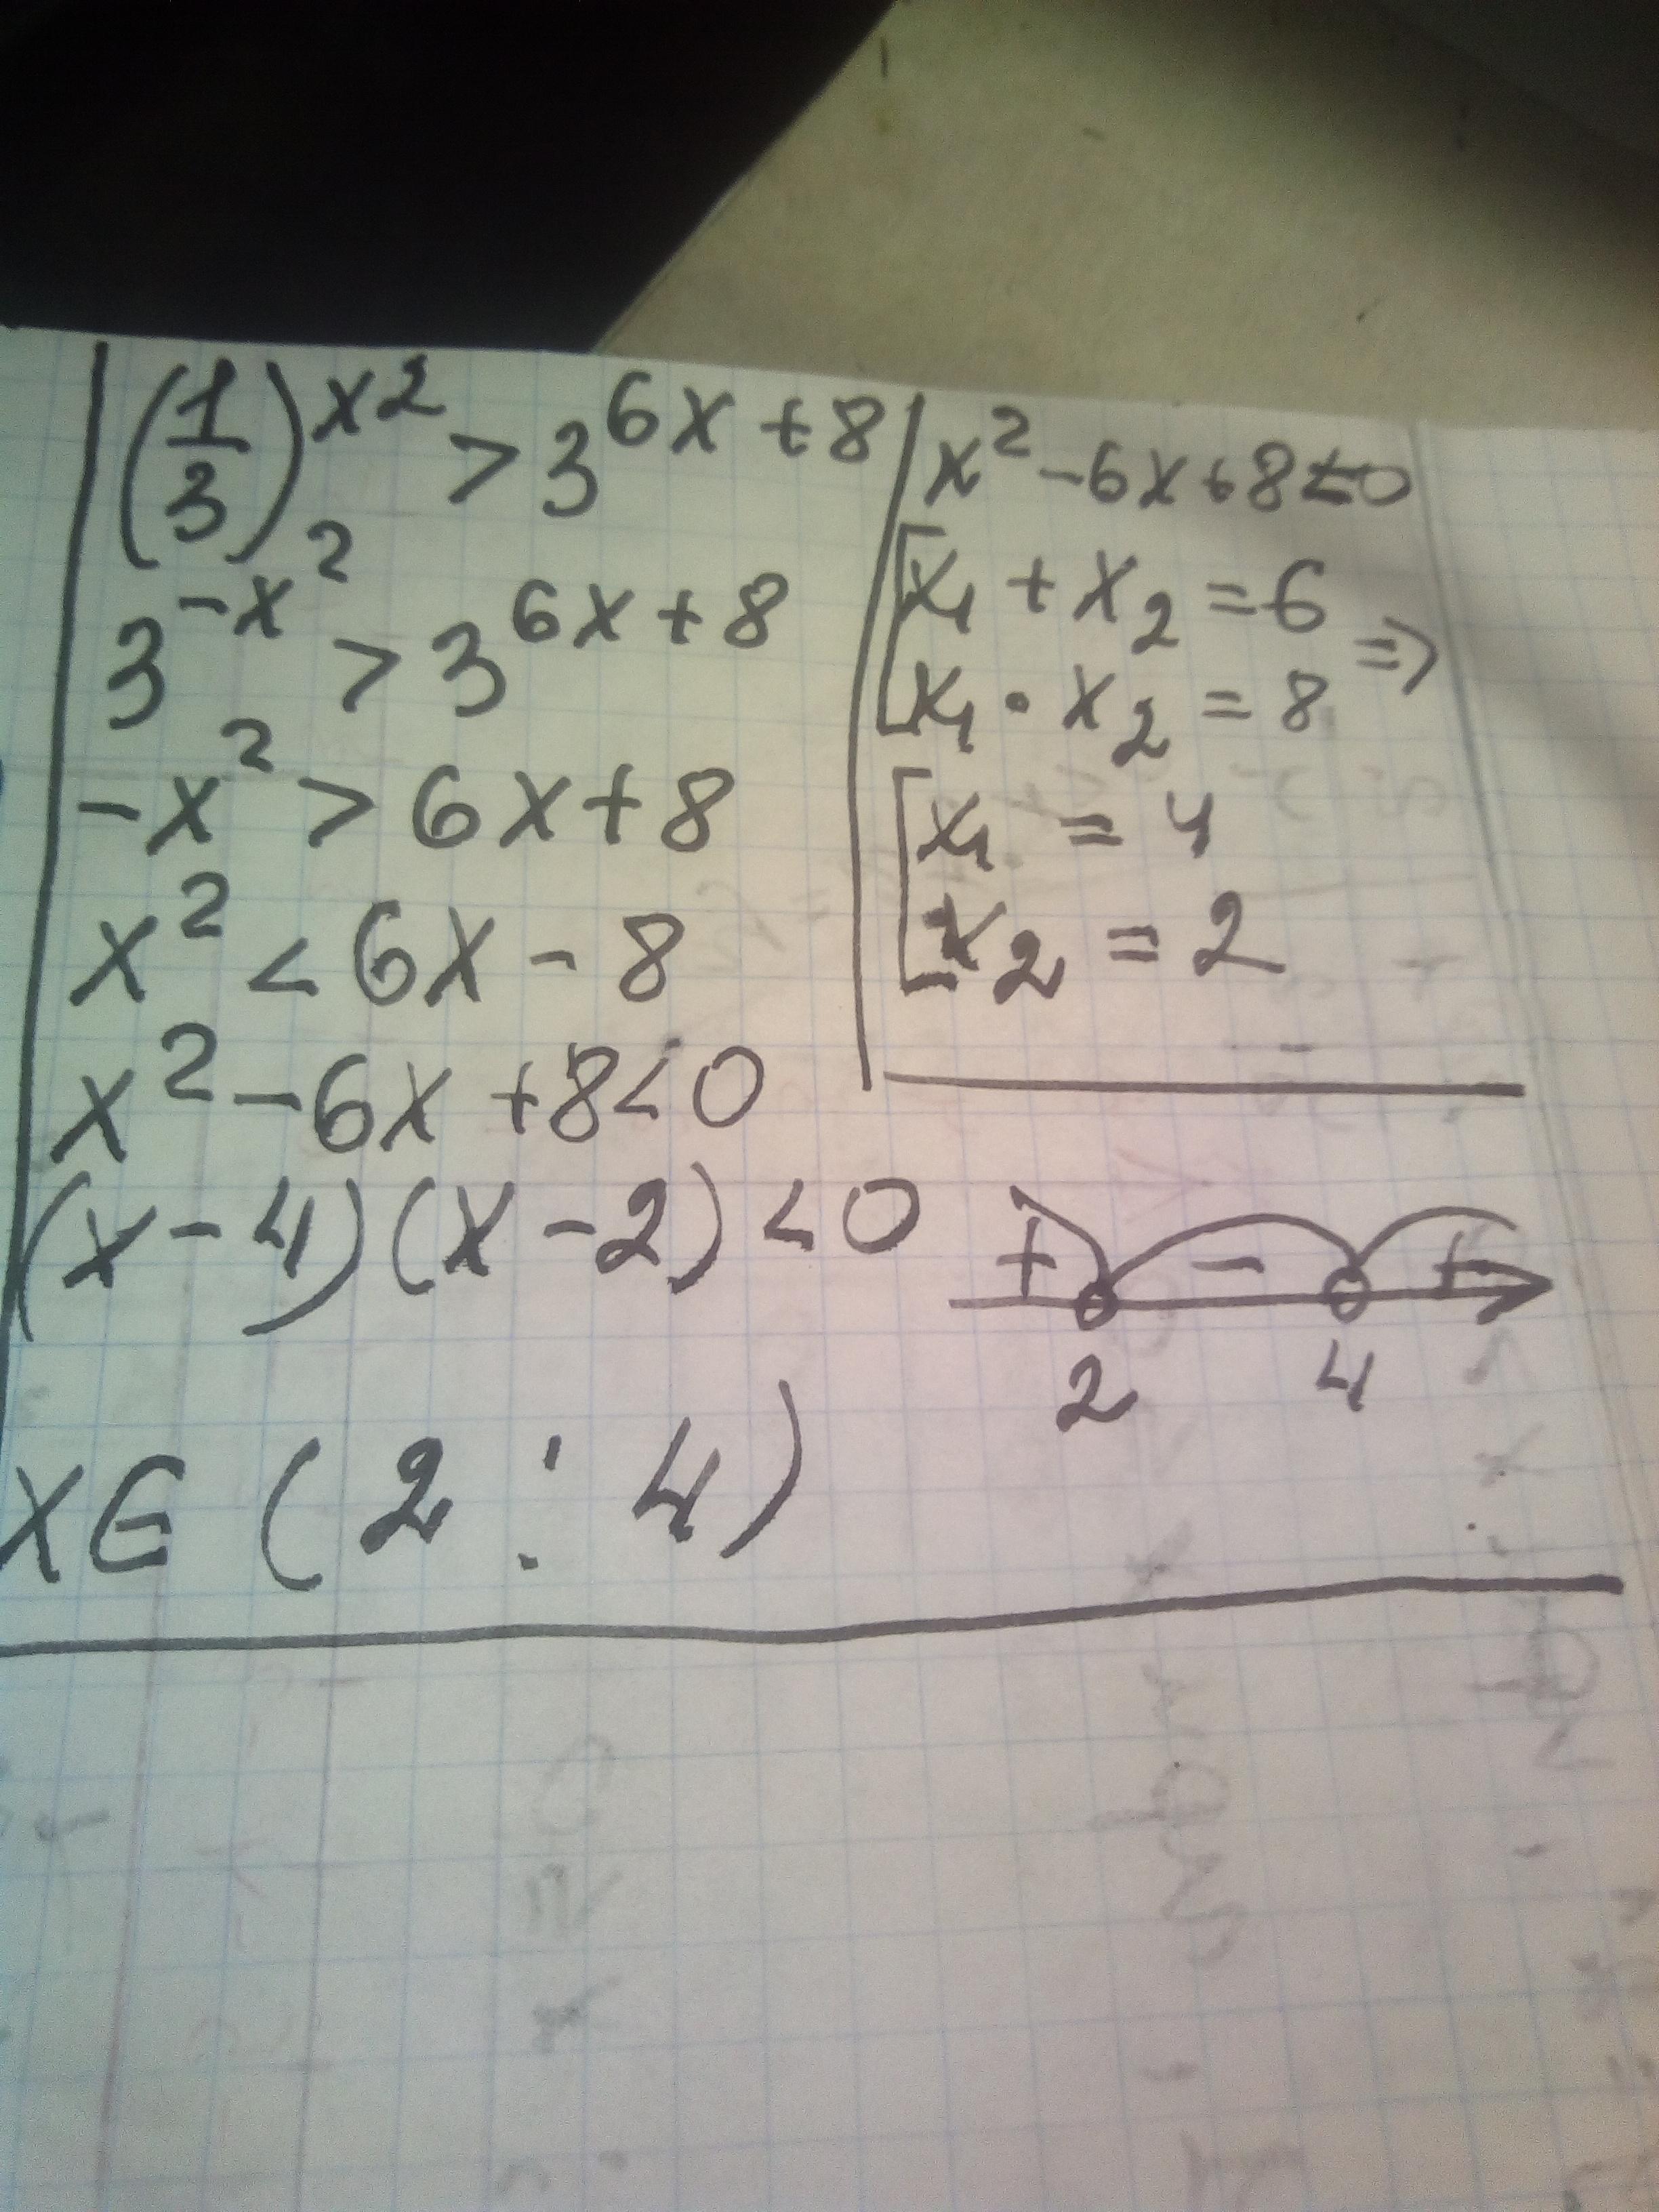 (1/3)^x2 > 3^6x+8
3^-x^2 > 3^6x+8
-x^2 > 6x+8
x^2 < 6x-8
x^2-6x+8<0
(x-4)(x-2)<0
x^2-6x+8<0
[x1+x2=6
[x1·x2=8 =>
[x1=4
[x2=2
+ - +
2 4
x∈(2;4)